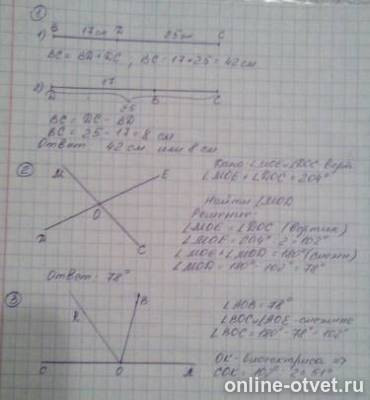 ①
B 17см D 25см C
1)
BC = BD + DC, BC = 17 + 25 = 42 см
2) 17
D B C
25
BC = DC - BD
BC = 25 - 17 = 8 см
Ответ 42 см или 8 см
② M E
O
D C
Дано: ∠MOE и ∠DOC верт
∠MOE + ∠DOC = 204°
Найти ∠MOD
Решение:
∠MOE = ∠DOC (вертик)
∠MOE = 204° : 2 = 102°
∠MOE + ∠MOD = 180° (смежн)
∠MOD = 180° - 102° = 78°
Ответ: 78°
③ K B
O A
∠AOB = 78°
∠BOC и ∠AOB - смежные
∠BOC = 180° - 78° = 102°
OK - биссектриса =>
COK = 102° : 2 = 51°
online-otvet.ru